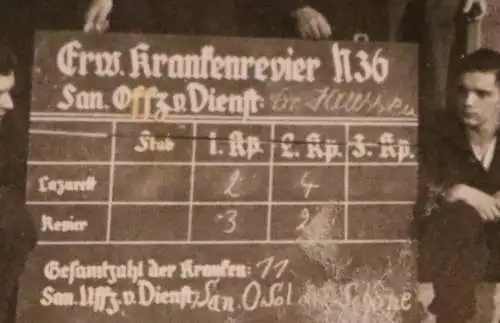 Erw. Krankenrevier N36
San. Offz. v. Dienst:
Stab 1. Kp. 2. Kp. 3. Kp.
Lazarett 2 4
Revier 3 2
Gesamtzahl der Kranken: 11
San. Uffz. v. Dienst: San. O Sol Schöne